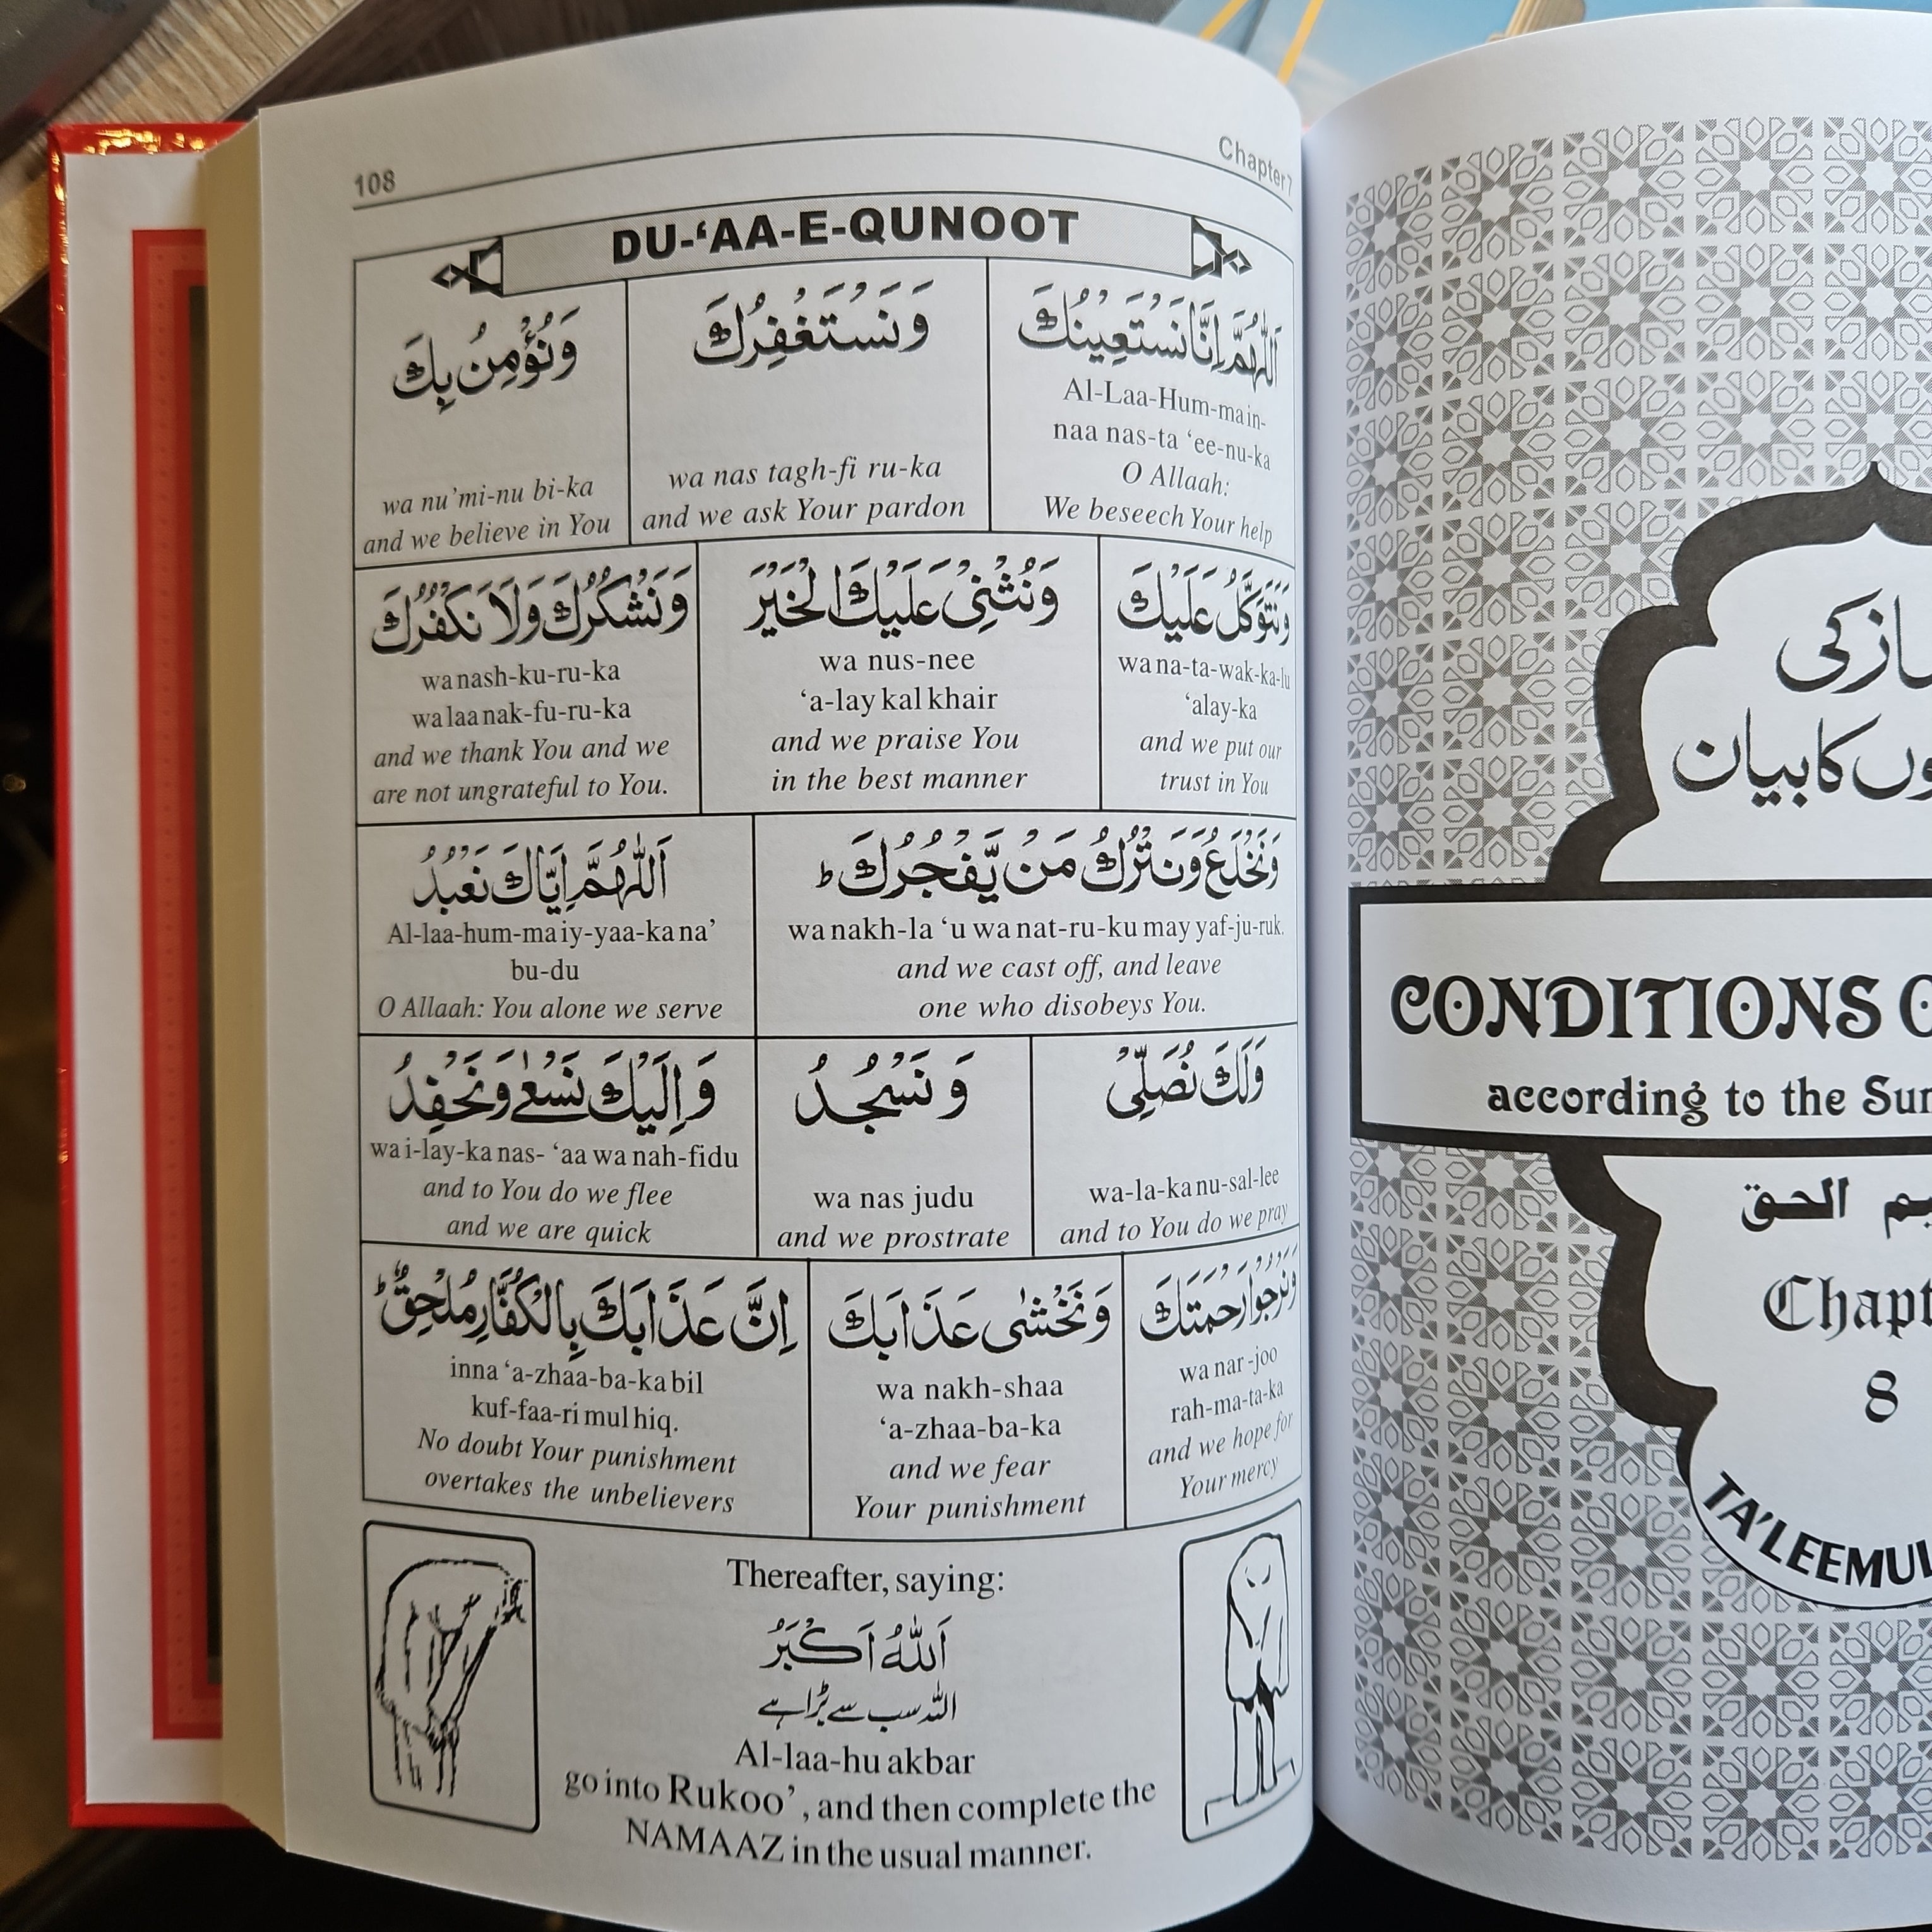 108
Chapter 7
DU-‘AA-E-QUNOOT
اَللّٰهُمَّ اِنَّا نَسْتَعِيْنُكَ
Al-Laa-Hum-ma in-
naa nas-ta ‘ee-nu-ka
O Allaah:
We beseech Your help
وَنَسْتَغْفِرُكَ
wa nas tagh-fi ru-ka
and we ask Your pardon
وَنُؤْمِنُ بِكَ
wa nu’mi-nu bi-ka
and we believe in You
وَنَتَوَكَّلُ عَلَيْكَ
wa na-ta-wak-ka-lu
‘alay-ka
and we put our
trust in You
وَنُثْنِىْ عَلَيْكَ الْخَيْرَ
wa nus-nee
‘a-lay kal khair
and we praise You
in the best manner
وَنَشْكُرُكَ وَلَا نَكْفُرُكَ
wa nash-ku-ru-ka
wa laa nak-fu-ru-ka
and we thank You and we
are not ungrateful to You.
وَنَخْلَعُ وَنَتْرُكُ مَنْ يَّفْجُرُكَ ؕ
wa nakh-la ‘u wa nat-ru-ku may yaf-ju-ruk.
and we cast off, and leave
one who disobeys You.
اَللّٰهُمَّ اِيَّاكَ نَعْبُدُ
Al-laa-hum-ma iy-yaa-ka na’
bu-du
O Allaah: You alone we serve
وَلَكَ نُصَلِّىْ
wa-la-ka nu-sal-lee
and to You do we pray
وَ نَسْجُدُ
wa nas judu
and we prostrate
وَ اِلَيْكَ نَسْعٰى وَنَحْفِدُ
wa i-lay-ka nas- ‘aa wa nah-fidu
and to You do we flee
and we are quick
وَنَرْجُوْا رَحْمَتَكَ
wa nar -joo
rah-ma-ta-ka
and we hope for
Your mercy
وَنَخْشٰى عَذَابَكَ
wa nakh-shaa
‘a-zhaa-ba-ka
and we fear
Your punishment
اِنَّ عَذَابَكَ بِالْكُفَّارِ مُلْحِقٌ ؕ
inna ‘a-zhaa-ba-ka bil
kuf-faa-ri mul hiq.
No doubt Your punishment
overtakes the unbelievers
Thereafter, saying:
اَللّٰهُ اَكْبَرُ
اللہ سب سے بڑا ہے
Al-laa-hu akbar
go into Rukoo’, and then complete the
NAMAAZ in the usual manner.
کی
کا بیان
CONDITIONS
according to the
الحق
8